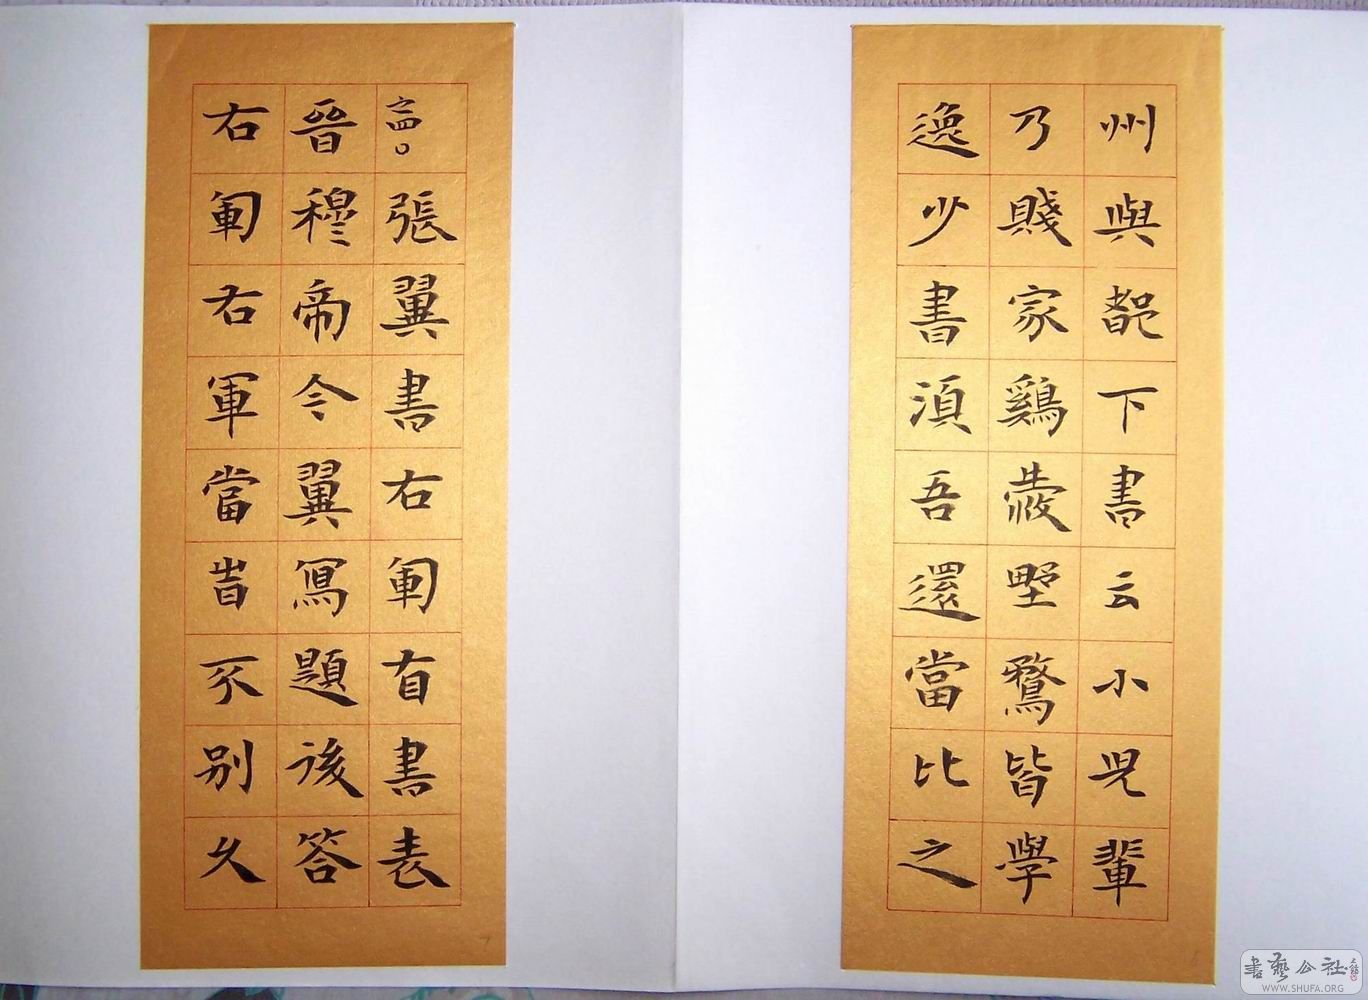 州與都下書云小兒輩
乃賤家鷄愛野鶩皆學
逸少書須吾還當比之
之四。張翼書右軍自書表
晉穆帝令翼寫題後答
右軍右軍當旹不別久
書藝公社
WWW.SHUFA.ORG